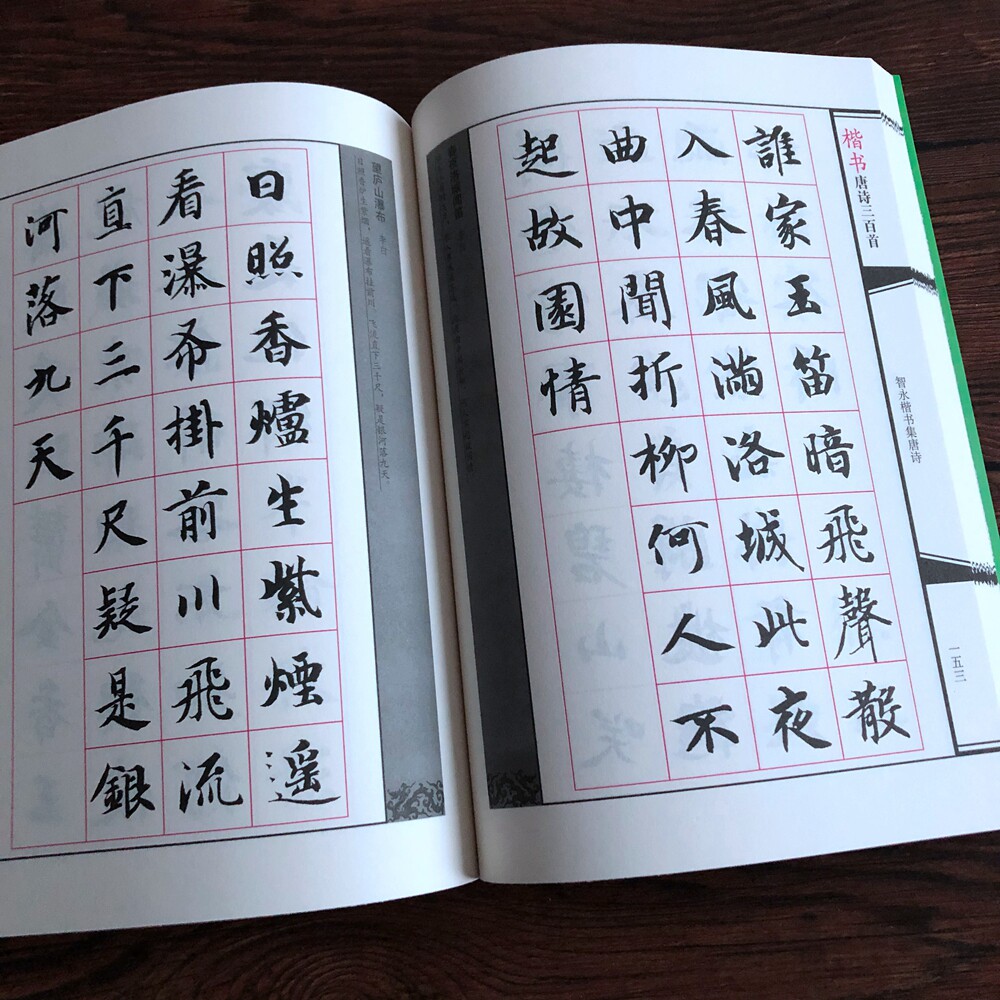 楷书唐诗三百首
智永楷书集唐诗
一五三
誰家玉笛暗飛聲散
入春風滿洛城此夜
曲中聞折柳何人不
起故園情
望庐山瀑布 李白
日照香炉生紫烟，遥看瀑布挂前川。飞流直下三千尺，疑是银河落九天。
日照香爐生紫煙遥
看瀑布掛前川飛流
直下三千尺疑是銀
河落九天